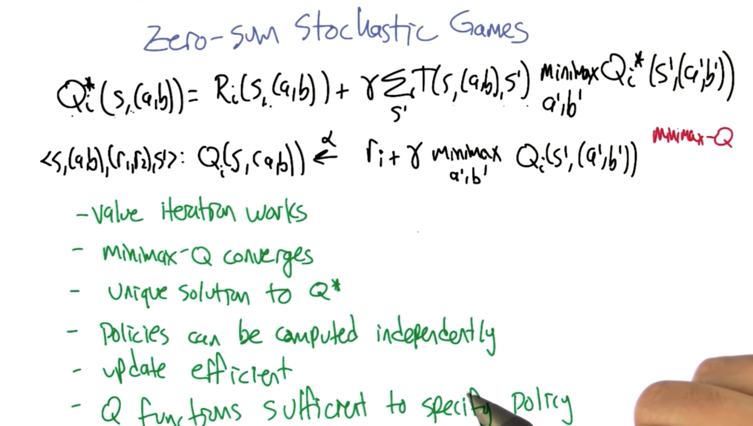 Zero-sum Stochastic Games
Qᵢ*(s,(a,b)) = Rᵢ(s,(a,b)) + γ Σ T(s,(a,b),s') minimax Qᵢ*(s',(a',b'))
s' a',b'
<s,(a,b),(r₁,r₂),s'>: Qᵢ(s,(a,b)) ←α rᵢ + γ minimax Qᵢ(s',(a',b')) minimax-Q
a',b'
- value iteration works
- minimax-Q converges
- unique solution to Q*
- policies can be computed independently
- update efficient
- Q functions sufficient to specify policy